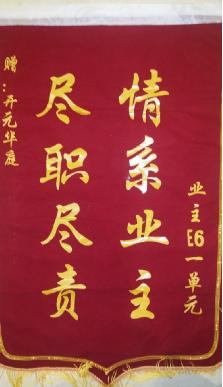 赠:开元华庭
情系业主
尽职尽责
业主E6一单元